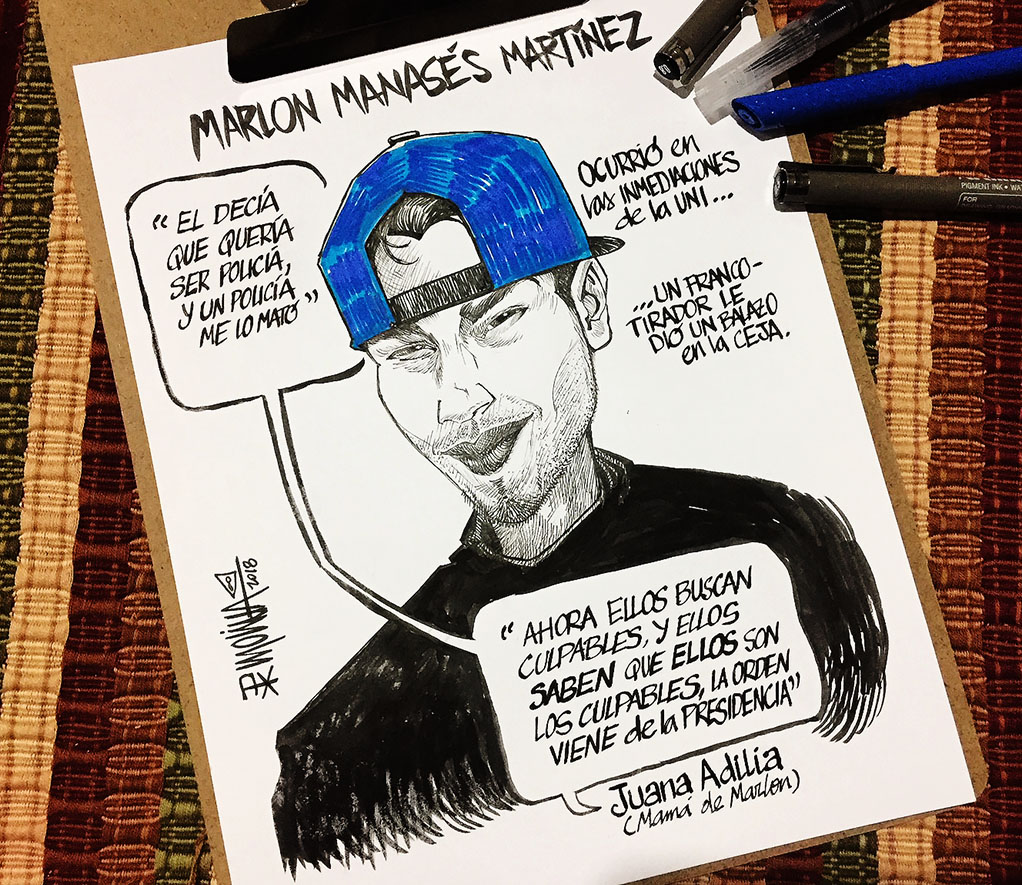 MARLON MANASÉS MARTÍNEZ
“ EL DECÍA
QUE QUERÍA
SER POLICÍA,
Y UN POLICÍA
ME LO MATÓ ”
OCURRIÓ en
las INMEDIACIONES
de la UNI...
...UN FRANCO-
TIRADOR LE
DIÓ UN BALAZO
en la CEJA.
“ AHORA ELLOS BUSCAN
CULPABLES, Y ELLOS
SABEN QUE ELLOS SON
LOS CULPABLES, LA ORDEN
VIENE de la PRESIDENCIA”
Juana Adilia
(Mamá de Marlon)
2018
PIGMENT INK • WA
FOR